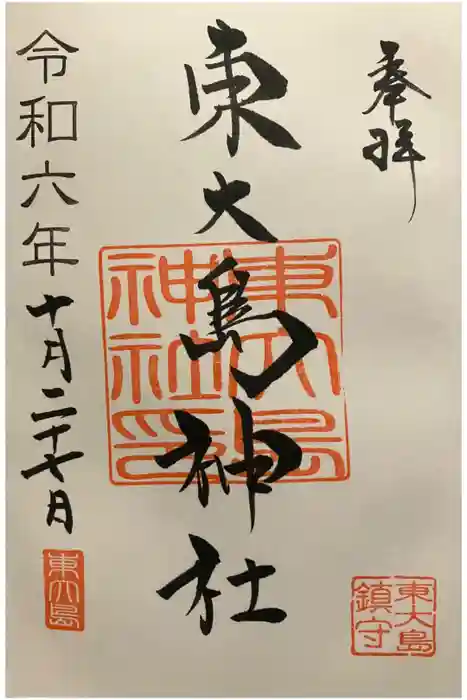 奉拝
東大島神社
東大島神社印
令和六年十月二十七日
東大島
東大島鎮守